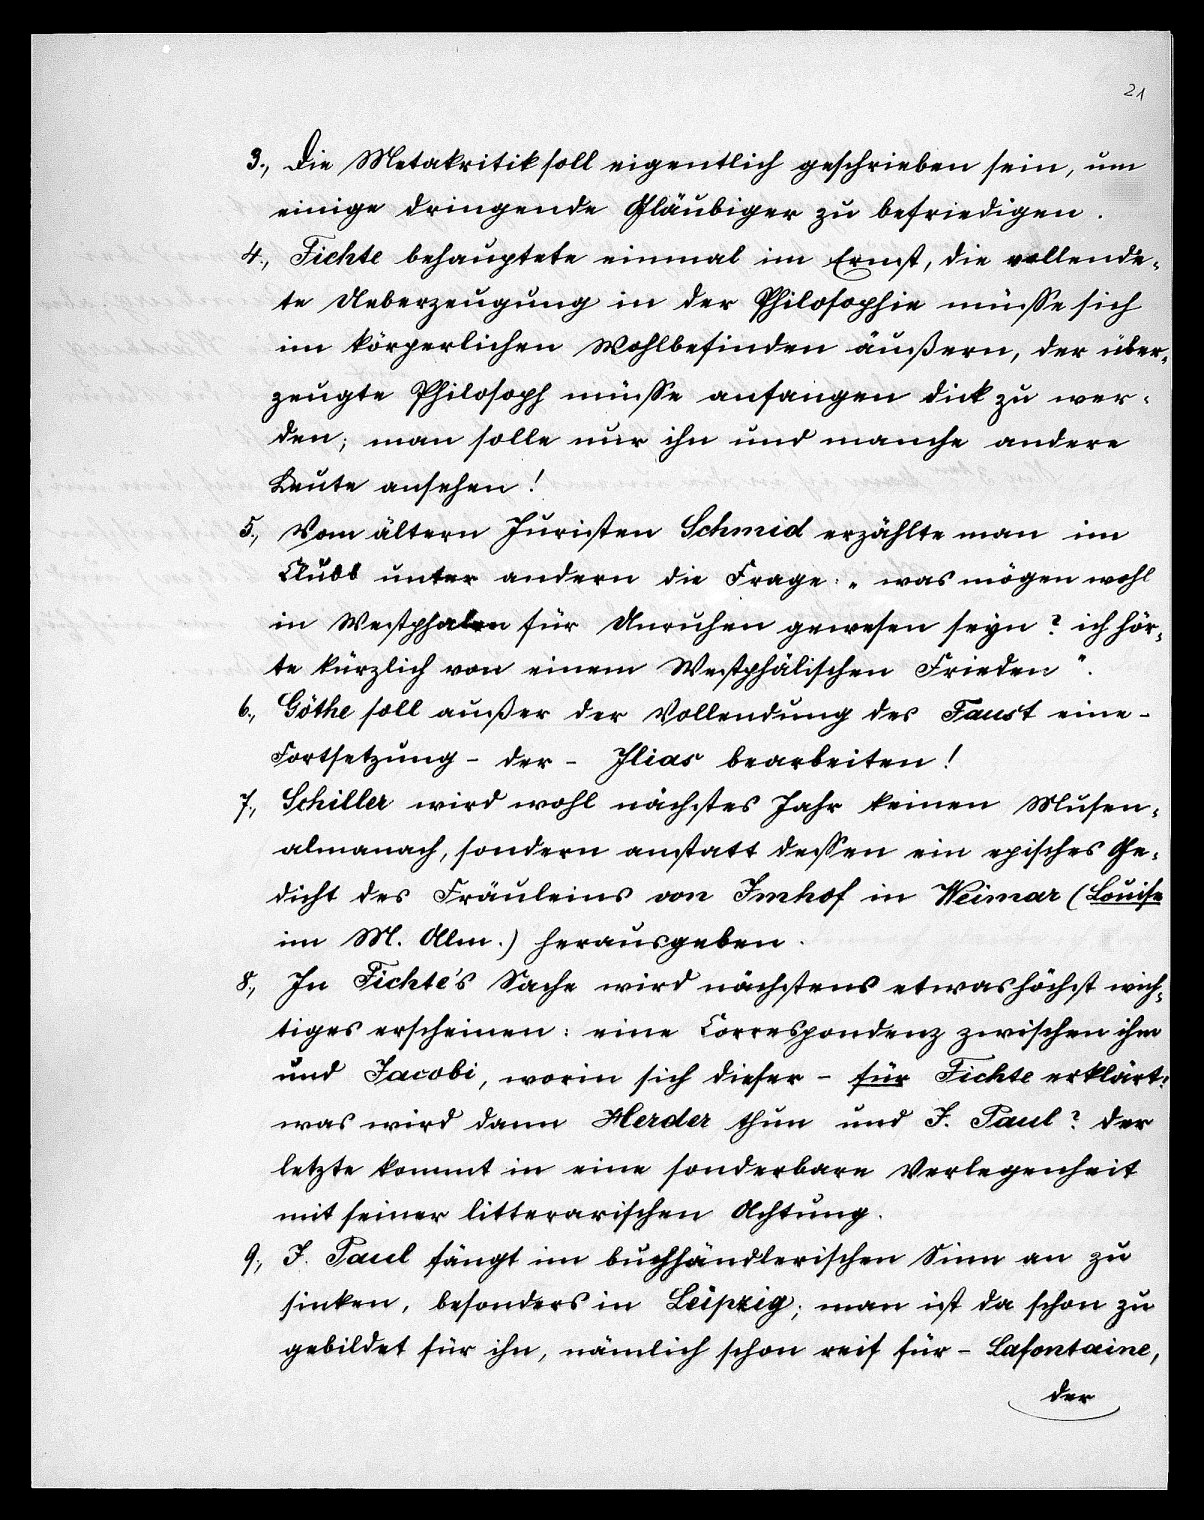 21
3., Die Metakritik soll eigentlich geschrieben sein, um
einige dringende Gläubiger zu befriedigen.
4., Fichte behauptete einmal im Ernst, die vollende-
te Ueberzeugung in der Philosophie müsse sich
im körperlichen Wohlbefinden äußern, der über-
zeugte Philosoph müsse anfangen dick zu wer-
den; man solle nur ihn und manche andere
Leute ansehen!
5., Vom ältern Juristen Schmid erzählte man im
Clubb unter andern die Frage: „was mögen wohl
in Westphalen für Unruhen gewesen seyn? ich hör-
te kürzlich von einem Westphälischen Frieden“.
6., Göthe soll außer der Vollendung des Faust eine -
Fortsetzung - der - Ilias bearbeiten!
7., Schiller wird wohl nächstes Jahr keinen Musen-
almanach, sondern anstatt dessen ein episches Ge-
dicht des Fräuleins von Imhof in Weimar (Louise
im M. Alm.) herausgeben.
8., In Fichte's Sache wird nächstens etwas höchst wich-
tiges erscheinen: eine Correspondenz zwischen ihm
und Jacobi, worin sich dieser - für Fichte erklärt:
was wird dann Herder thun und J. Paul? der
letzte kommt in eine sonderbare Verlegenheit
mit seiner litterarischen Achtung.
9., J. Paul fängt im buchhändlerischen Sinn an zu
sinken, besonders in Leipzig; man ist da schon zu
gebildet für ihn, nämlich schon reif für - Lafontaine,
der